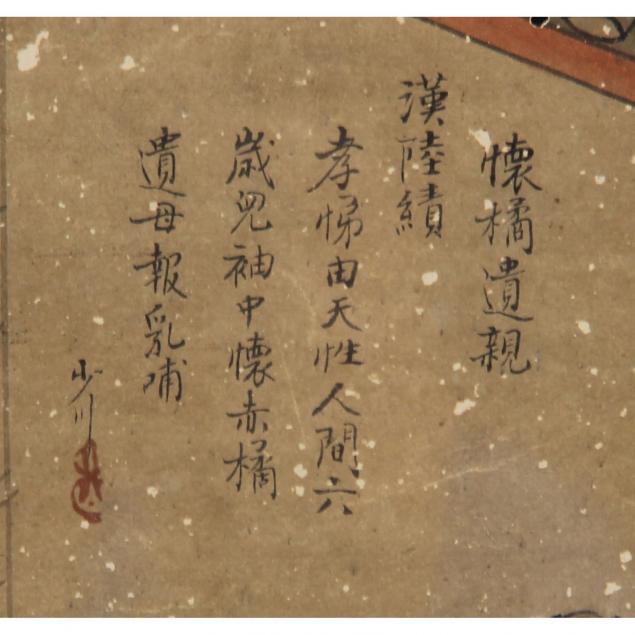 懐橘遺親
漢陸績
孝悌由天性人間六
歲兒袖中懐赤橘
遺母報乳哺